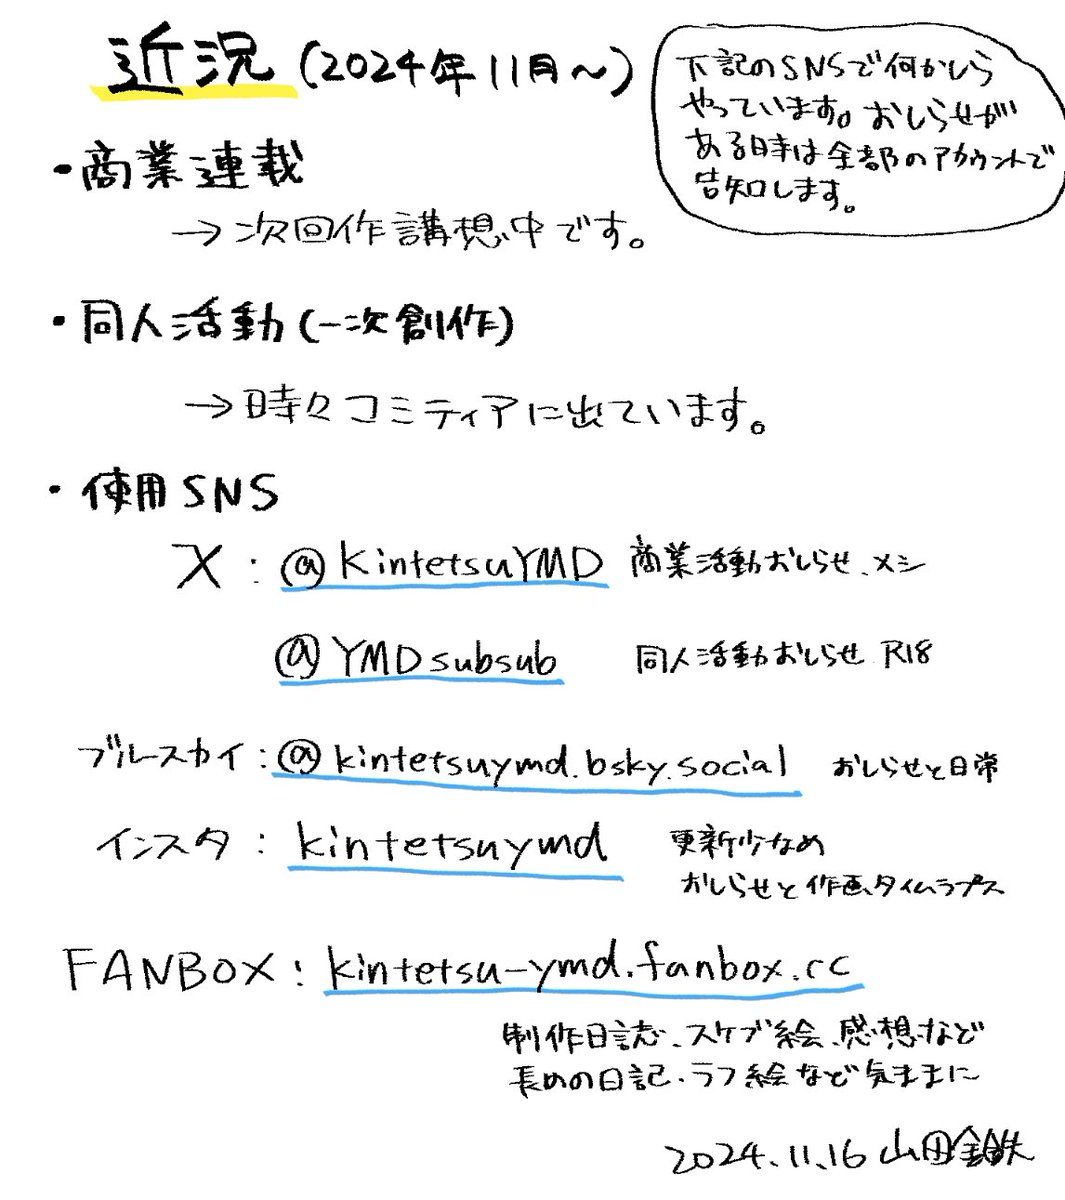 近況(2024年11月〜)
下記のSNSで何かしら
やっています。おしらせが
ある時は全部のアカウントで
告知します。
・商業連載
→次回作講想中です。
・同人活動(一次創作)
→時々コミティアに出ています。
・使用SNS
X:@KintetsuYMD 商業活動おしらせ、メシ
@YMDsubsub 同人活動おしらせ R18
ブルースカイ:@kintetsuymd.bsky.social おしらせと日常
インスタ: kintetsuymd 更新少なめ
おしらせと作画タイムラプス
FANBOX: kintetsu-ymd.fanbox.cc
制作日誌、スケブ絵、感想など
長めの日記・ラフ絵など気ままに
2024.11.16 山田金鉄